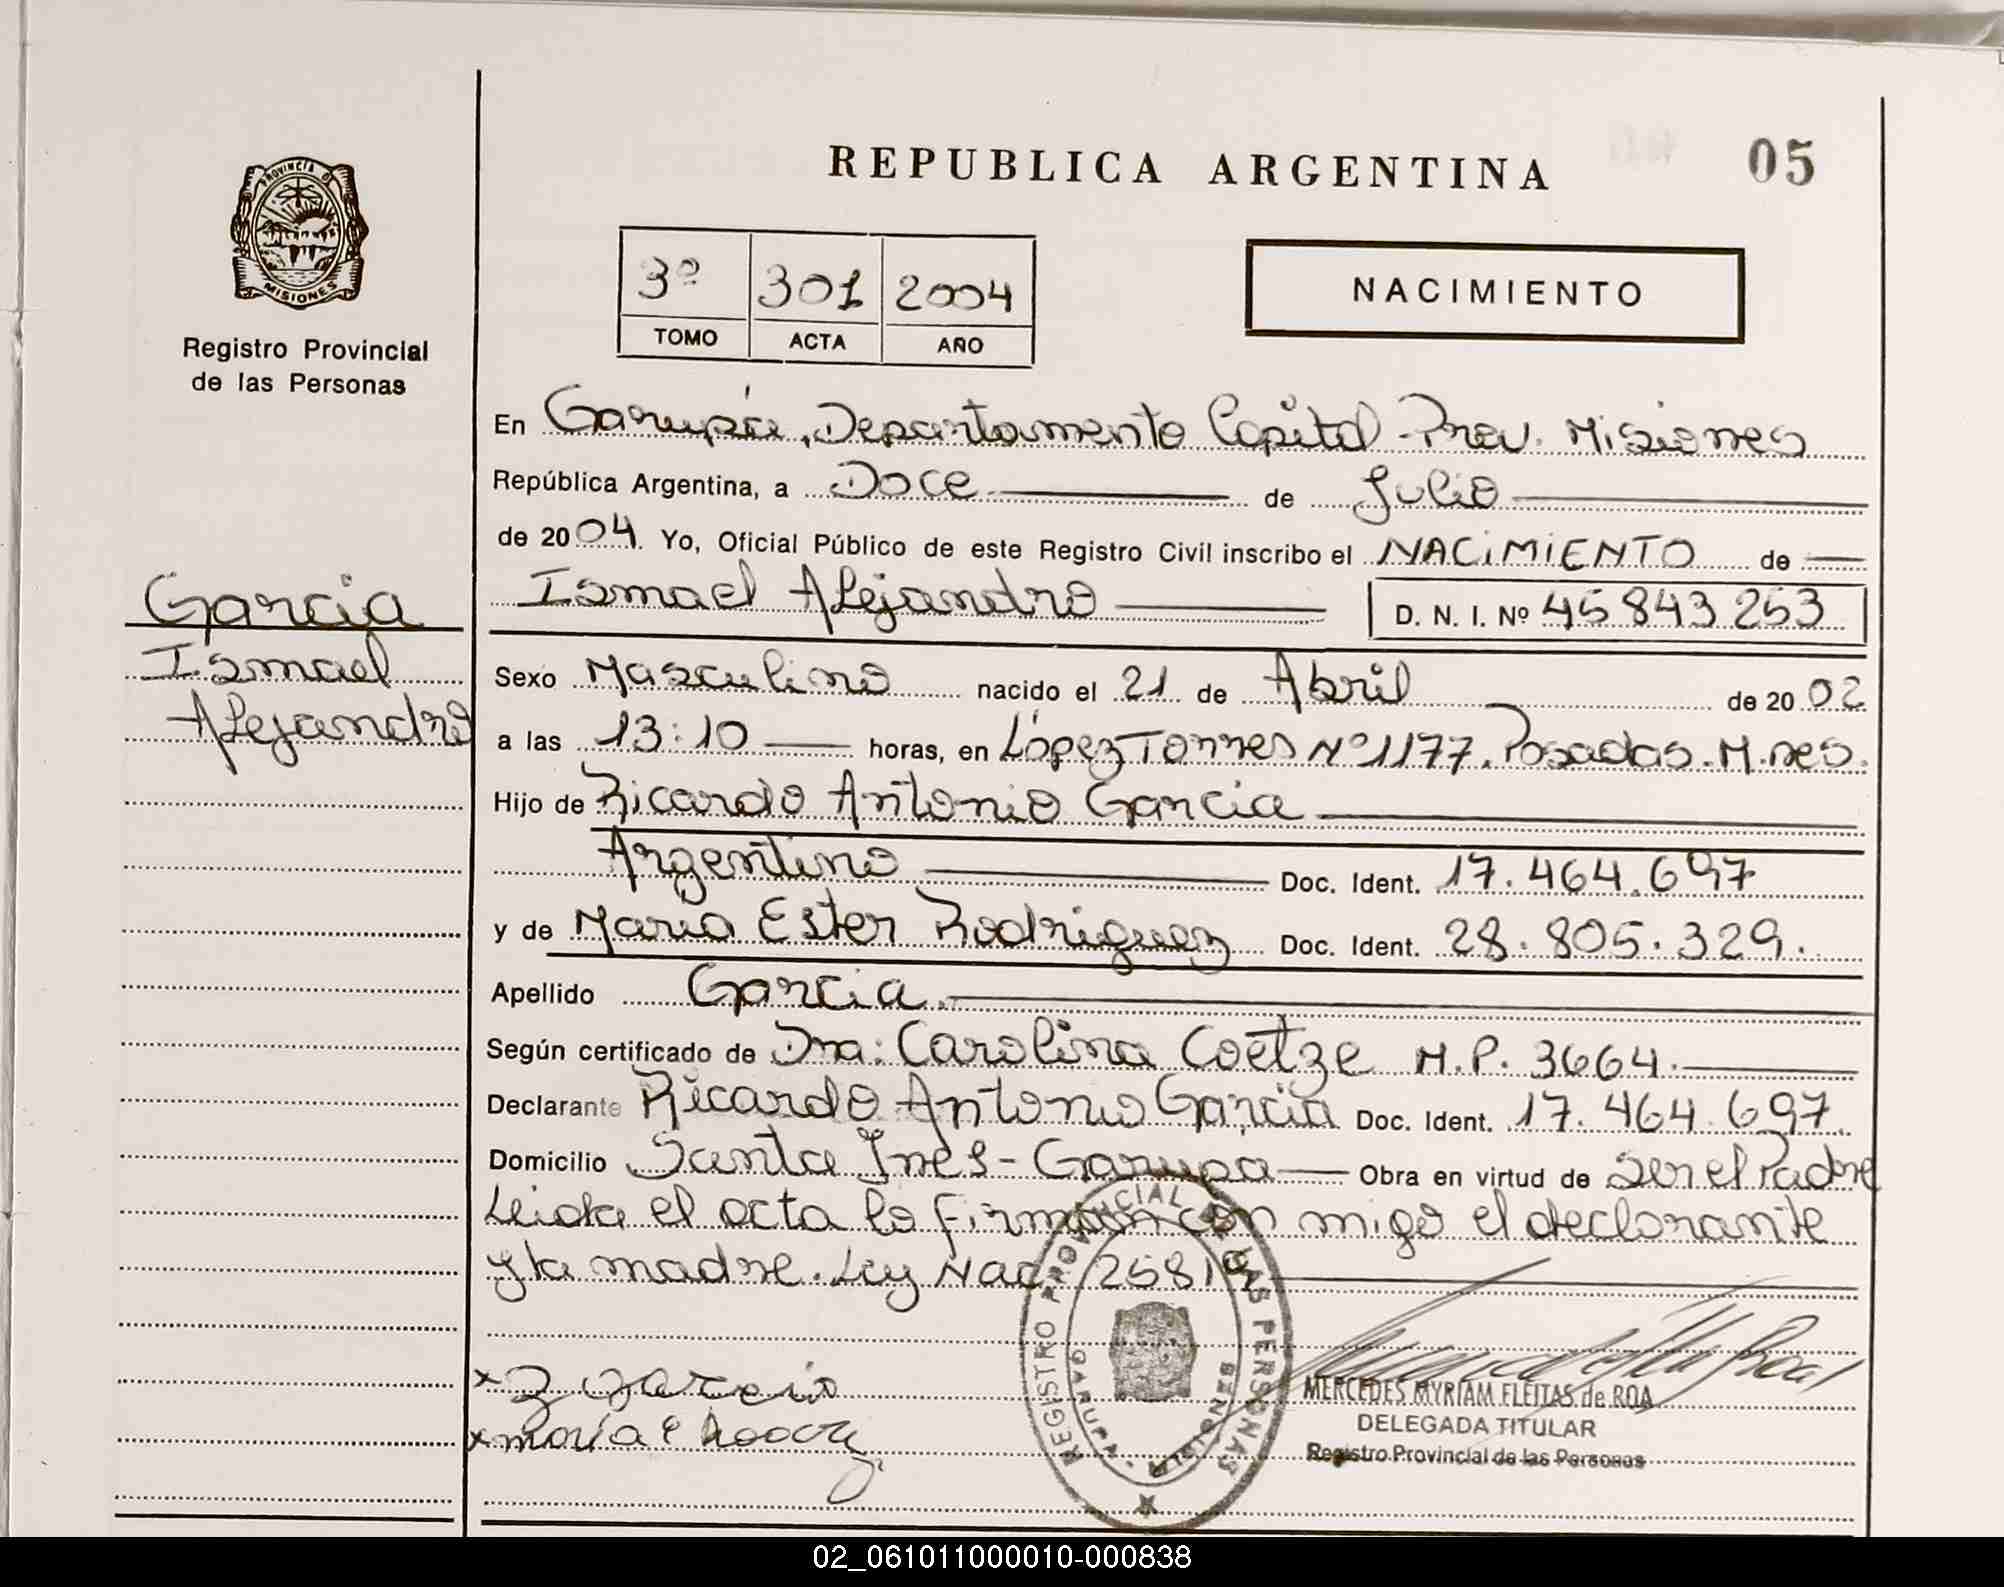 REPUBLICA ARGENTINA
05
PROVINCIA D
MISIONES
Registro Provincial
de las Personas
3º 301 2004
TOMO ACTA AÑO
NACIMIENTO
En Garupá, Departamento Capital - Prov. Misiones
República Argentina, a Doce de Julio
de 2004. Yo, Oficial Público de este Registro Civil inscribo el NACIMIENTO de
Ismael Alejandro D. N. I. Nº 45 843 253
Garcia
Ismael
Alejandro
Sexo Masculino nacido el 21 de Abril de 2002
a las 13:10 horas, en López Torres Nº 1177. Posadas. M.nes.
Hijo de Ricardo Antonio Garcia
Argentino Doc. Ident. 17.464.697
y de Maria Ester Rodriguez Doc. Ident. 28.805.329.
Apellido Garcia
Según certificado de Dra: Carolina Coetze M.P. 3664.
Declarante Ricardo Antonio Garcia Doc. Ident. 17.464.697
Domicilio Santa Ines - Garupa Obra en virtud de ser el Padre
Leida el acta la firman con migo el declarante
y la madre. Ley Nac. 25819
REGISTRO PROVINCIAL DE LAS PERSONAS
GARUPA - MISIONES
x garcia
x maría e
MERCEDES MYRIAM FLEITAS de ROA
DELEGADA TITULAR
Registro Provincial de las Personas
02_061011000010-000838